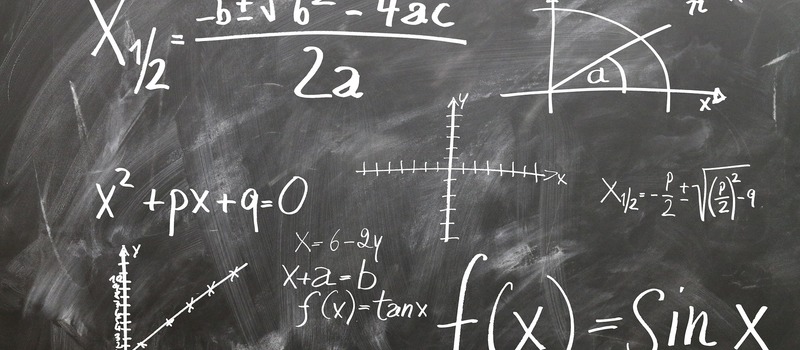 X₁/₂ = -b ± √b² - 4ac
2a
x
a
y
x
x² + px + q = 0
X₁/₂ = -p/2 ± √(p/2)² - q
y
x = 6 - 2y
x + a = b
f(x) = tan x
f(x) = Sin x